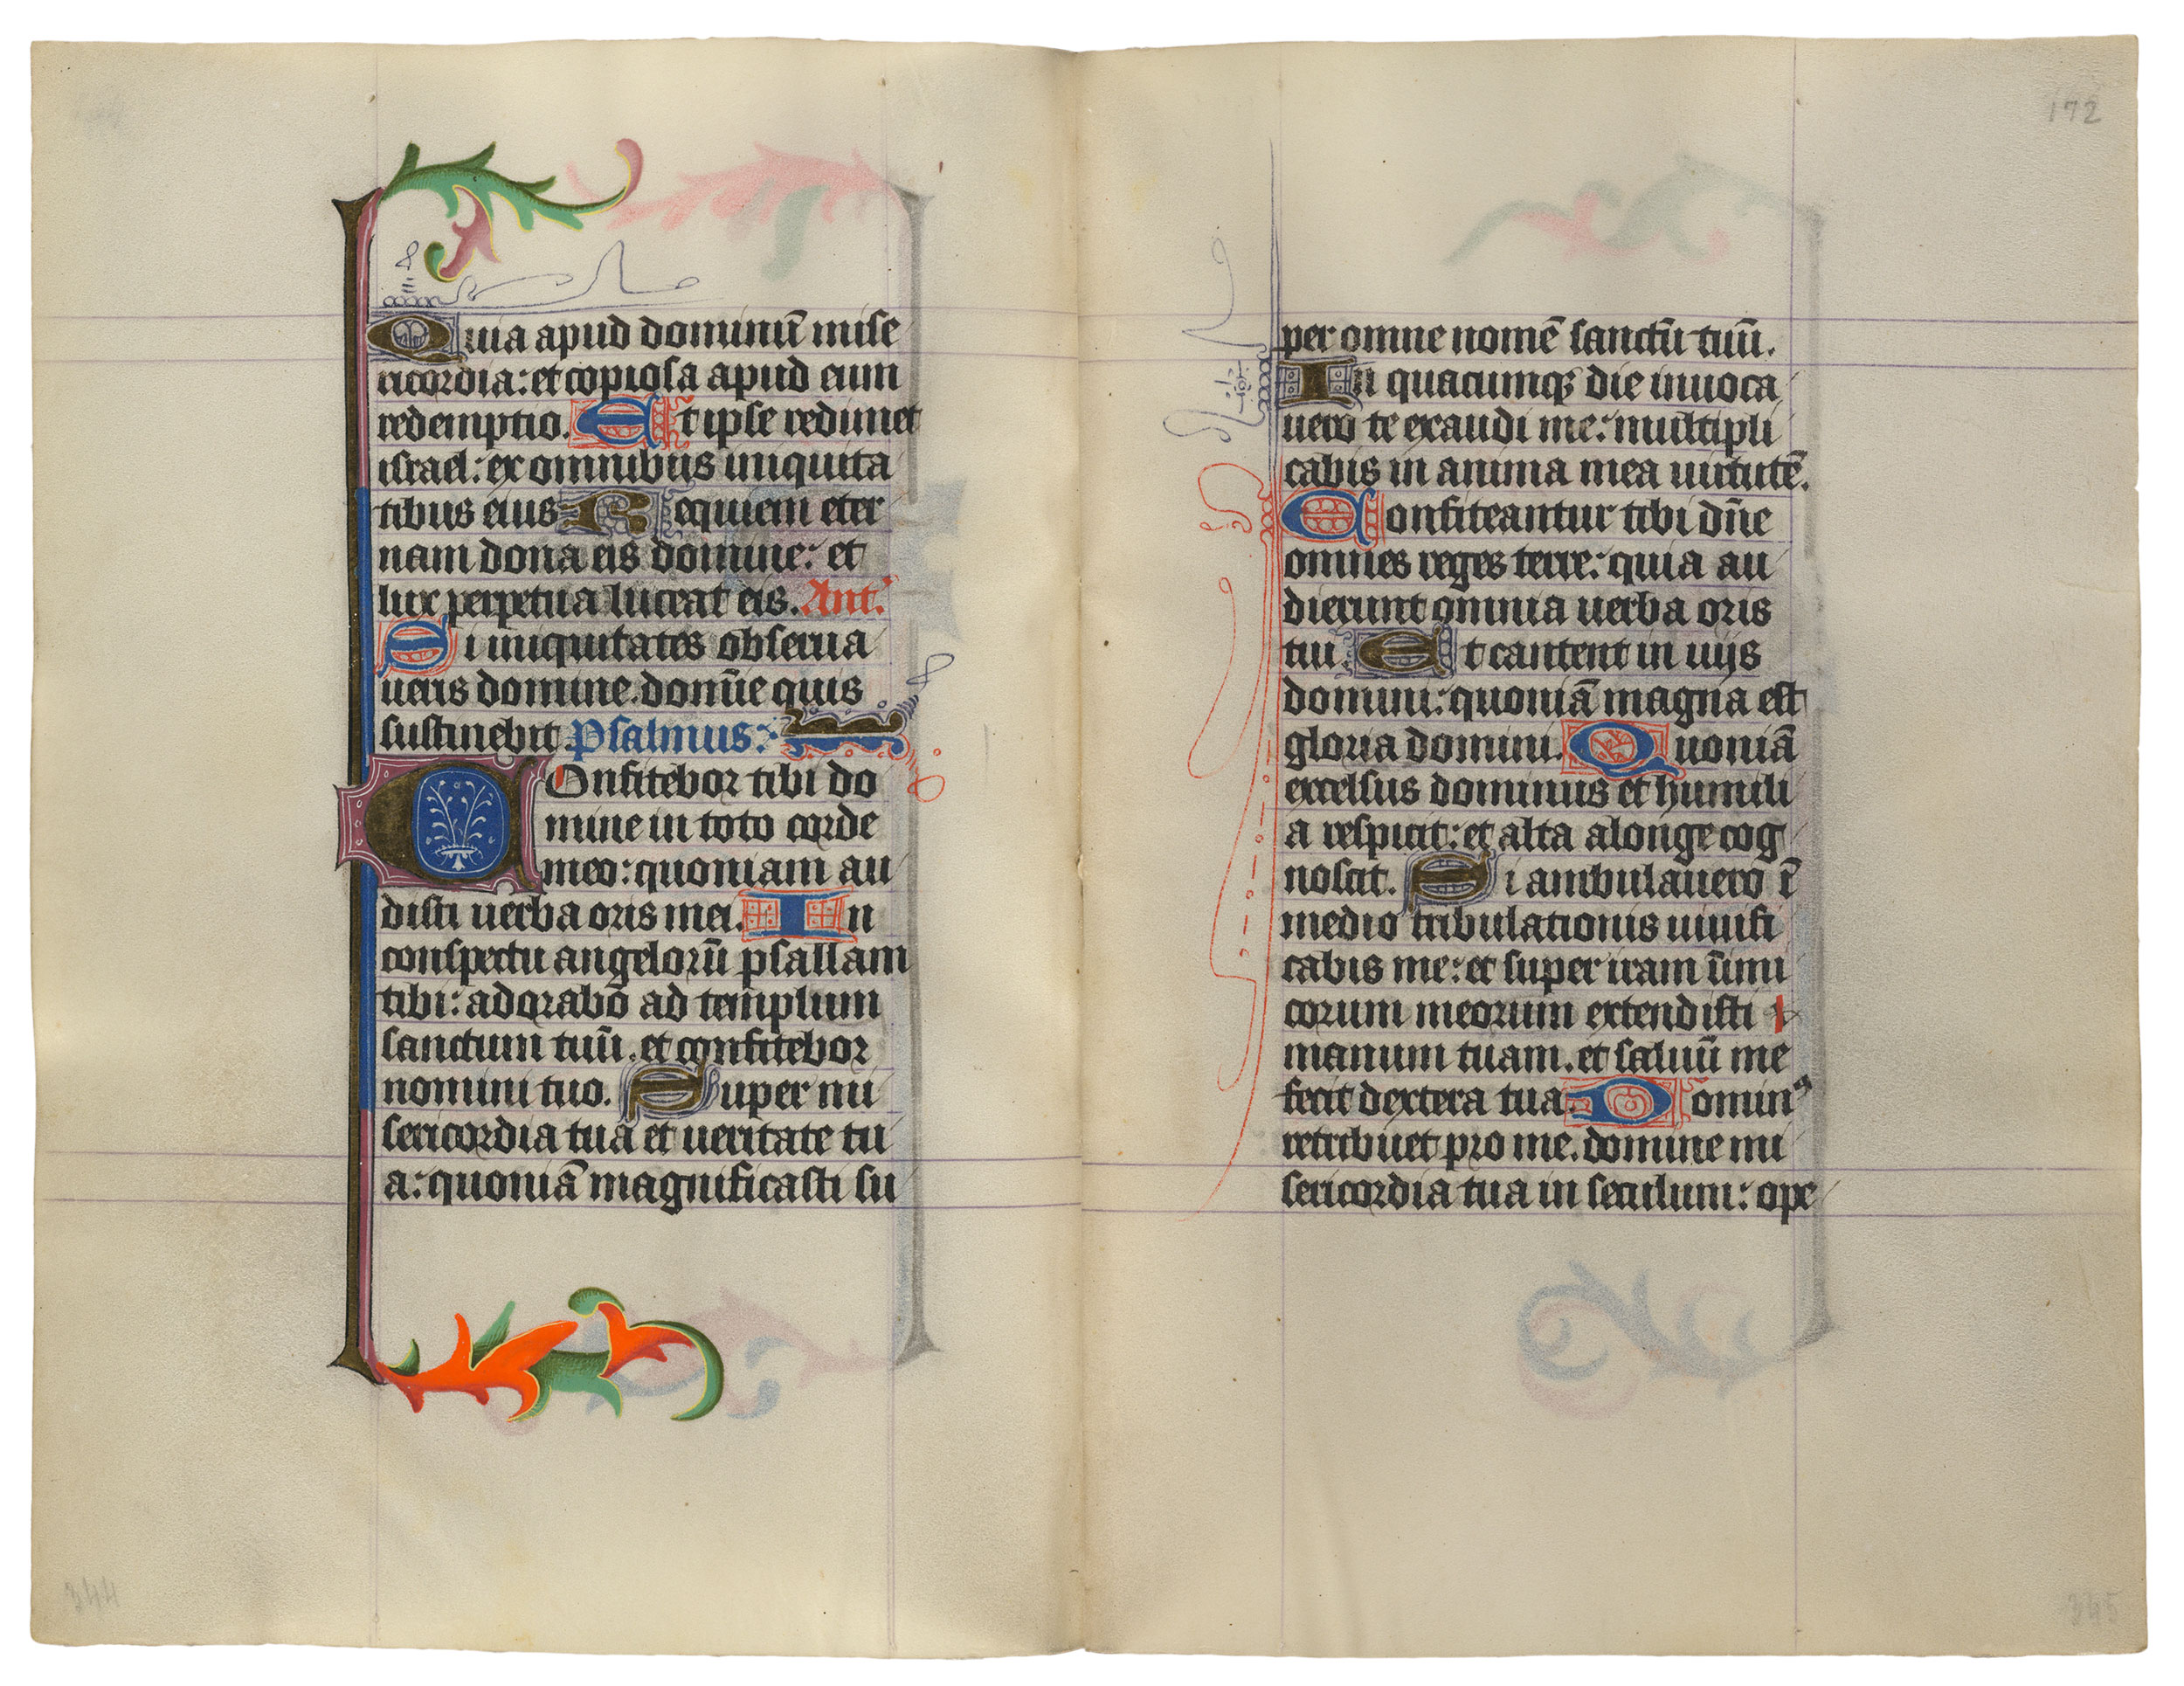 Quia apud dominū mise
ricordia: et copiosa apud eum
redemptio. Et ipse redimet
israel: ex omnibus iniquita
tibus eius Requiem eter
nam dona eis domine: et
lux perpetua luceat eis. Ant.
Si iniquitates obserua
ueris domine. domīe quis
sustinebit Psalmus:
Confitebor tibi do
mine in toto corde
meo: quoniam au
disti uerba oris mei. In
conspectu angelorū psallam
tibi: adorabo ad templum
sanctum tuū. et confitebor
nomini tuo. Super mi
sericordia tua et ueritate tu
a: quoniā magnificasti su
344
172
per omne nomē sanctū tuū.
In quacumqꝫ die inuoca
uero te exaudi me: multipli
cabis in anima mea uirtutē.
Confiteantur tibi dn̄e
omnes reges terre: quia au
dierunt omnia uerba oris
tui. Et cantent in uijs
domini: quoniā magna est
gloria domini. Quoniā
excelsus dominus et humili
a respicit: et alta alonge cog
noscit. Si ambulauero ī
medio tribulationis uiuifi
cabis me: et super iram īimi
corum meorum extendisti
manum tuam. et saluū me
fecit dextera tua. Dominꝰ
retribuet pro me. domine mi
sericordia tua in seculum: ope
345